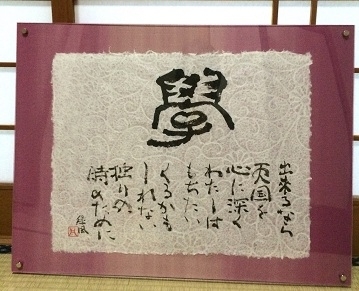 學
出来るなら
天国を
心に深く
わたしは
もちたい
くるかも
しれない
独りの
時のために